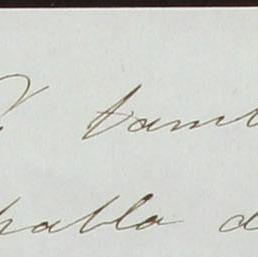 y tamb
habla d